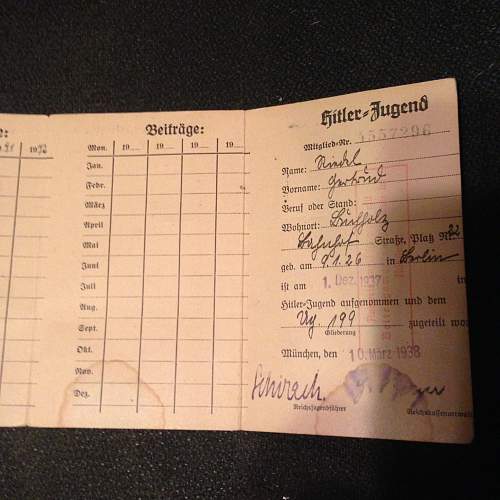 19 42
Beiträge:
Mon. 19 19 19 19
Jan.
Febr.
März
April
Mai
Juni
Juli
Aug.
Sept.
Okt.
Nov.
Dez.
Hitler-Jugend
Mitglied-Nr. 4557296
Name: Riedel
Vorname: Gertrud
Beruf oder Stand:
Wohnort: Buchholz
Bahnhof Straße, Platz Nr. 22
geb. am 9.1.26 in Berlin
ist am 1. Dez. 1937 in
Hitler-Jugend aufgenommen und dem
Ug. 199 zugeteilt wor
Gliederung
München, den 10. März 1938
Schirach.
Reichsjugendführer Reichskassenverwalt